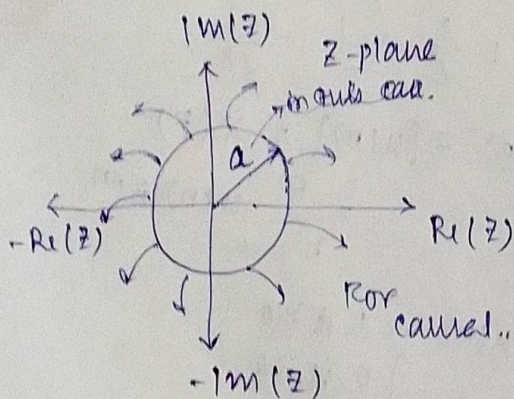 Im(Z)
Z-plane
in this case.
a
-Re(Z)
Re(Z)
ROC
causal..
-Im(Z)